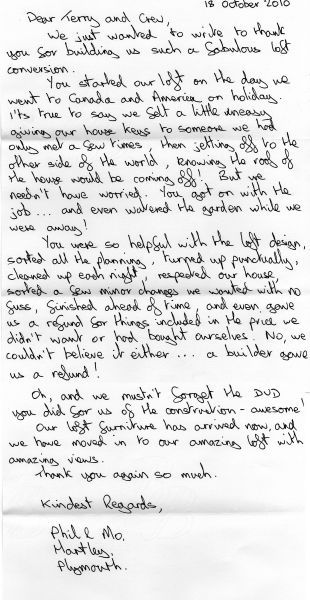 18 October 2010
Dear Terry and Crew,
We just wanted to write to thank
you for building us such a fabulous loft
conversion.
You started our loft on the day we
went to Canada and America on holiday.
It's true to say we felt a little uneasy
giving our house keys to someone we had
only met a few times, then jetting off to the
other side of the world, knowing the roof of
the house would be coming off! But we
needn't have worried. You got on with the
job... and even watered the garden while we
were away!
You were so helpful with the loft design,
sorted all the planning, turned up punctually,
cleaned up each night, respected our house,
sorted a few minor changes we wanted with no
fuss, finished ahead of time, and even gave
us a refund for things included in the price we
didn't want or had bought ourselves. No, we
couldn't believe it either... a builder gave
us a refund!
Oh, and we mustn't forget the DVD
you did for us of the construction - awesome!
Our loft furniture has arrived now, and
we have moved in to our amazing loft with
amazing views.
Thank you again so much.
Kindest Regards,
Phil & Mo.
Hartley,
Plymouth.